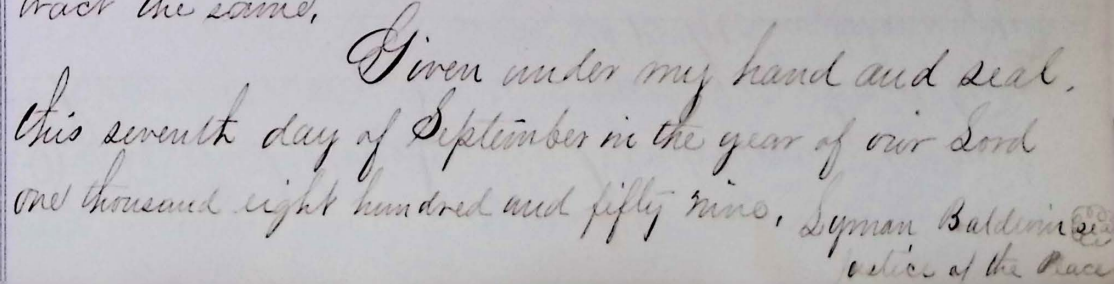 tract the same.
Given under my hand and seal,
this seventh day of September in the year of our Lord
one thousand eight hundred and fifty nine, Lyman Baldwin seal
Justice of the Peace